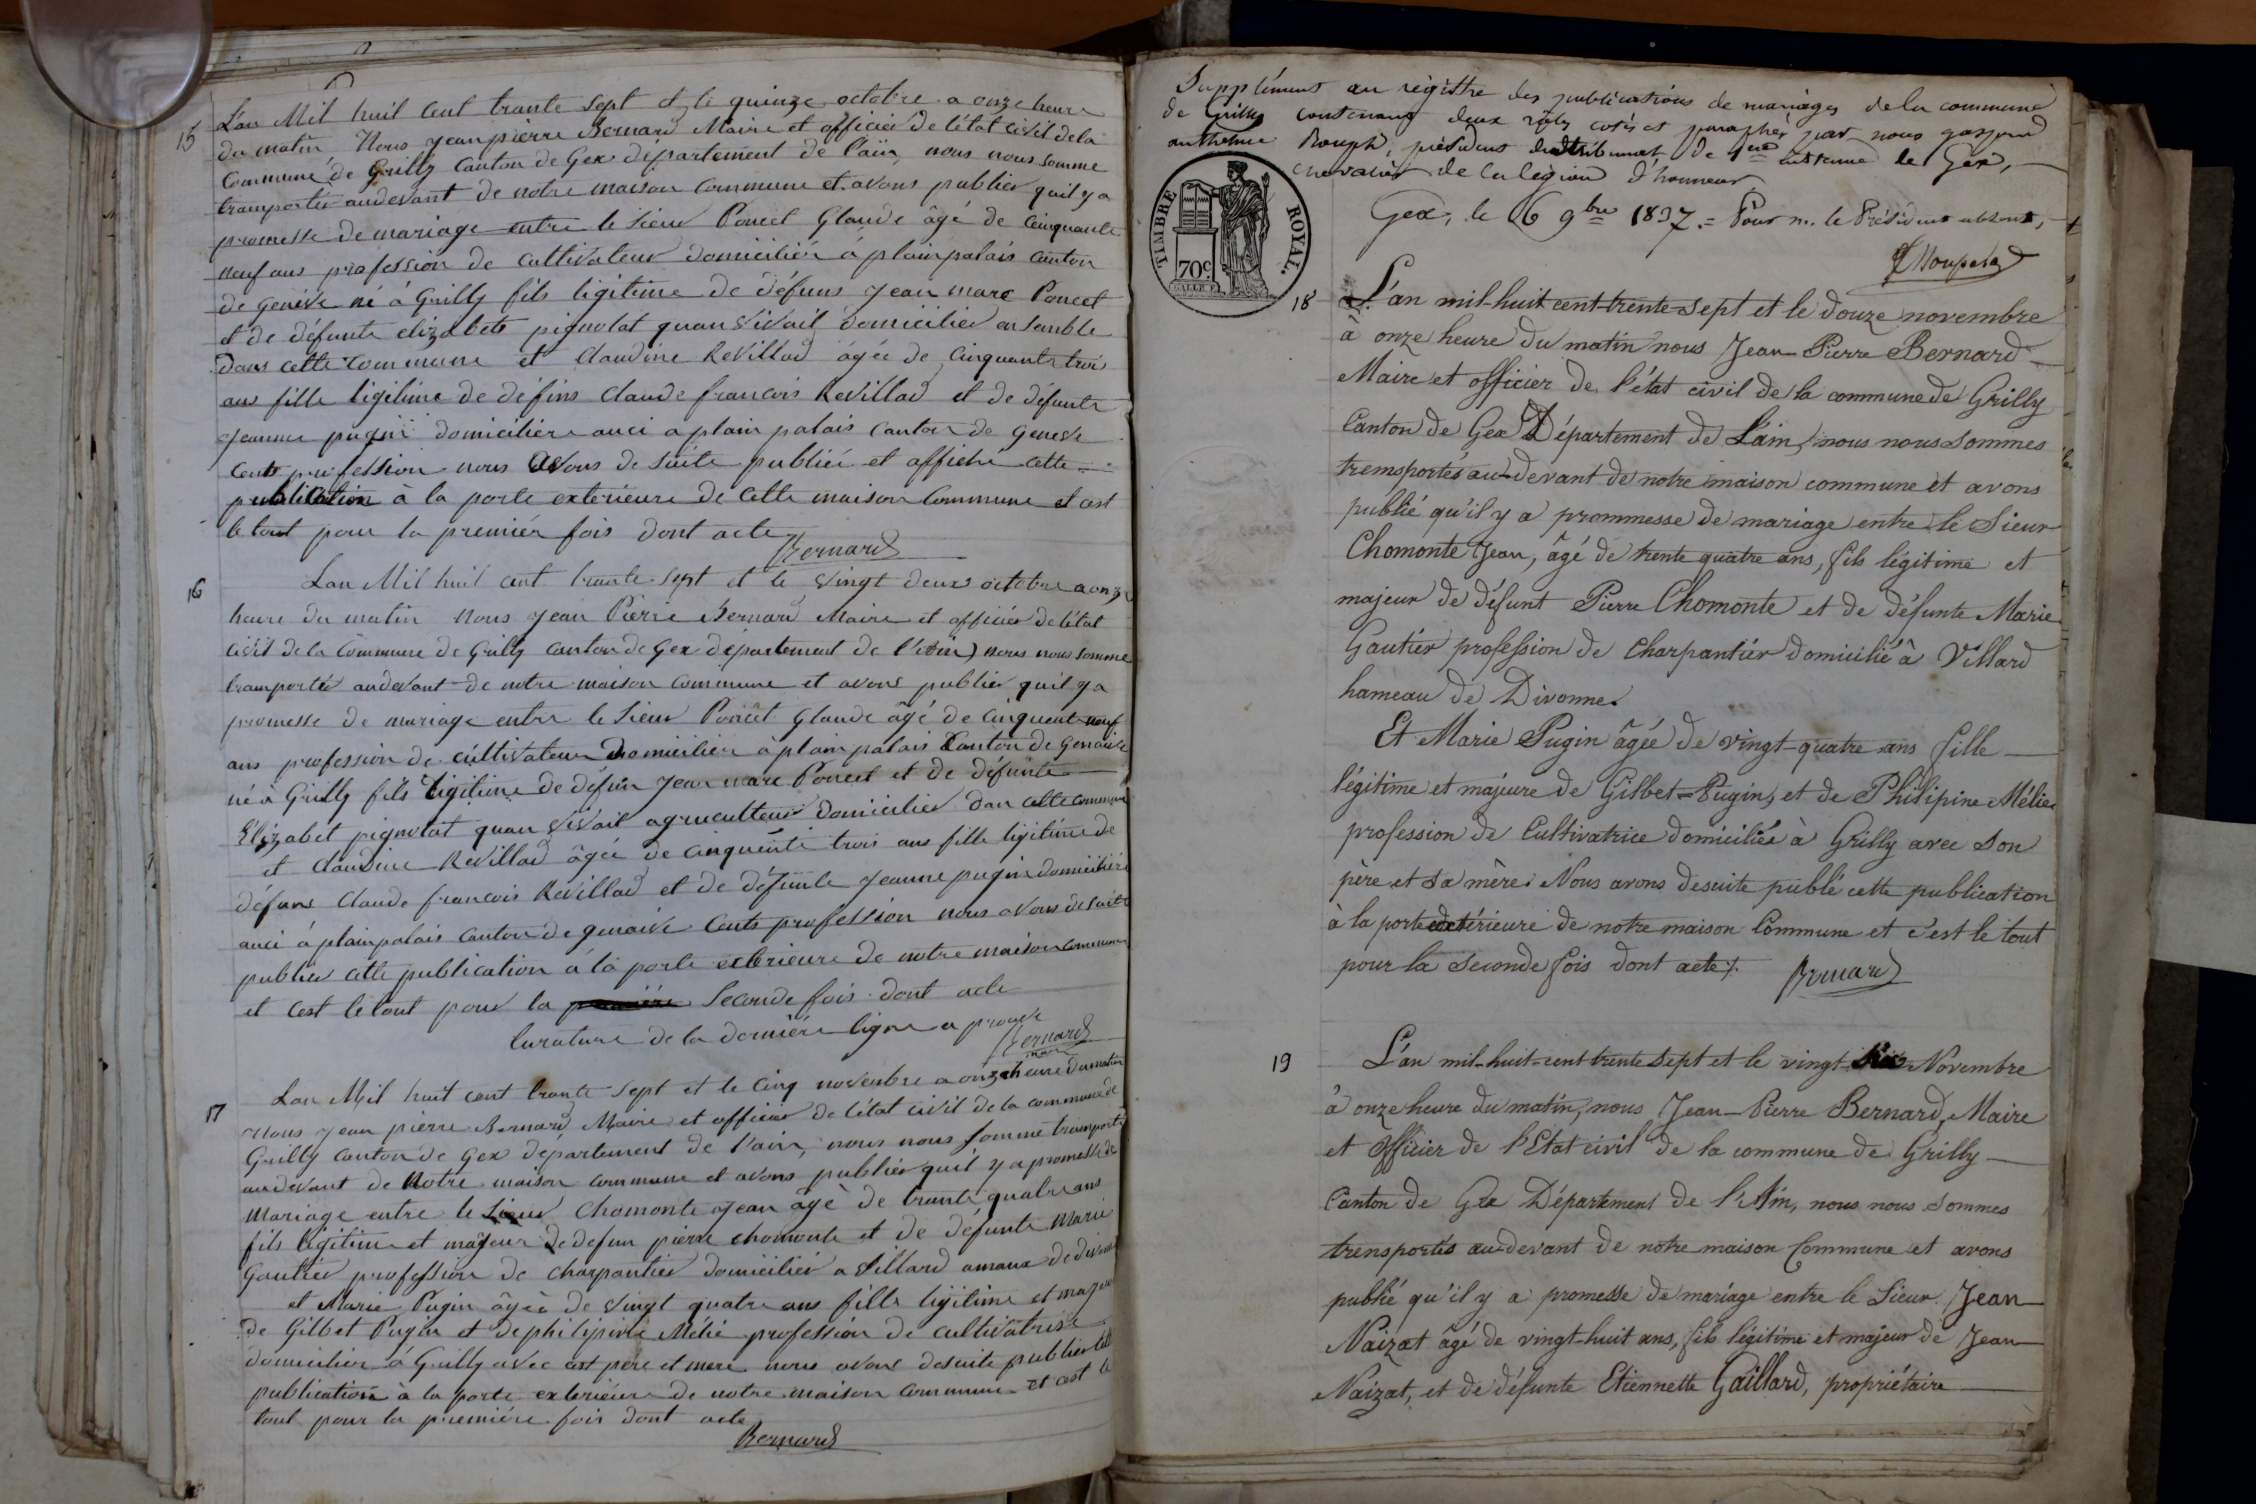 15
L'an Mil huil Cent trante sept et le quinze octobre a onze heure
du matin Nous jean pierre Bernard Maire et officier de l'état civil dela
Commune de Grilly Canton de Gex département de l'ain, nous nous somme
transportér audevant de notre maison Commune et avons publier quil y a
promesse de mariage entre le sieur Poncet Glaude âgé de Cinquante
neuf ans profession de cultivateur domiciliér à plainpalais canton
de Genève né à Grilly fils ligitime de défuns jean marc Poncet
et de défunte elizabete pignolat quan vivait domicilier ensemble
dans cette commune et claudine Revillod âgée de cinquante trois
ans fille ligitime de défins claude francois Revillod et de défunte
jeanne pugin domicilière auci a plain palais canton de geneve
cents profession nous avons de suite publiér et affiché cette
publication à la porte exterieure de cette maison commune et cest
le tout pour la premiér fois dont acte
Bernard
16
Lan Mil huil cent trante sept et le vingt deux octobre a onze
heure du matin nous jean Pierre Bernard Maire et officier de létat
civil de la Commune de Grilly canton de Gex département de l'ain) nous nous somme
transportér audevant de notre maison commune et avons publier quil y a
promesse de mariage entre le sieur Poncet glaude âgé de cinquent neuf
ans profession de cultivateur domicilier à plain palais Canton de genaive
né à Grilly fils ligitime de défun jean marc Poncet et de défunte
Elizabet pignolat quan vivait agriculteur domicilier dan cette commune
et claudine Revillod âgée de cinquente trois ans fille ligitime de
défuns claude francois Revillod et de défunte jeanne pugin domicilière
auci à plainpalais canton de genaive cents profession nous avons de suite
publier cette publication à la porte exterieure de notre maison commune
et cest le tout pour la première seconde fois dont acte
lurature de la dernière ligne a prouve
Bernard
maire
17
Lan Mil huit cent trante sept et le cinq novembre a onze heure du matin
nous jean pierre Bernard Maire et officier de létat civil de la commune de
Grilly canton de gex département de l'ain, nous nous somme transporté
audevant de notre maison commune et avons publiér quil y a promesse de
mariage entre le sieur Chomonte jean âgé de trante quatre ans
fils légitime et majeur de defun pierre chomonte et de défunte marie
gautier profession de charpantier domicilier a villard amaux de divonne
et Marie Pugin âgée de vingt quatre ans fille ligitime et majeur
de Gilbet Pugin et de philipine Mélié profession de cultivatrise
domicilier à Grilly avec cest père et mere nous avons desuite publier cette
publication à la porte exterieure de notre maison commune et cest le
tout pour la première fois dont acte
Bernard
Supplément au registre des publications de mariages de la commune
de Grilly contenant deux rôles cotés et paraphés par nous gaspard
anthelme Rouph, président du tribunal de 1ère instance de Gex,
chevalier de la légion d'honneur
Gex, le 6 9bre 1837. = Pour m. le Président absent,
TIMBRE ROYAL.
70c
18
L'an mil-huit cent-trente-sept et le douze novembre
à onze heure du matin nous Jean-Pierre Bernard
Maire et officier de l'état civil de la commune de Grilly
Canton de Gex Département de L'ain, nous nous sommes
tremsportés au-devant de notre maison commune et avons
publié qu'il y a prommesse de mariage entre le Sieur
Chomonte Jean, âgé de trente quatre ans, fils légitime et
majeur de défunt Pierre Chomonte et de défunte Marie
Gautier profession de Charpantiér domicilié à Villard
hameau de Divonne.
Et Marie Pugin âgée de vingt-quatre ans fille
légitime et majeure de Gilbet-Pugin, et de Philipine Mélie
profession de Cultivatrice domiciliés à Grilly avec son
père et sa mère. Nous avons desuite publié cette publication
à la porte extérieure de notre maison Commune et c'est le tout
pour la seconde fois dont acte.
Bernard
19
L'an mil-huit-cent trente sept et le vingt-six Novembre
à onze heure du matin, nous Jean-Pierre Bernard, Maire
et Officier de l'Etat civil de la commune de Grilly
Canton de Gex Département de l'Ain, nous nous sommes
trensportés au-devant de notre maison Commune et avons
publié qu'il y a promesse de mariage entre le Sieur Jean
Naizat âgé de vingt-huit ans, fils légitime et majeur de Jean
Naizat, et de défunte Etiennette Gaillard, propriétaire